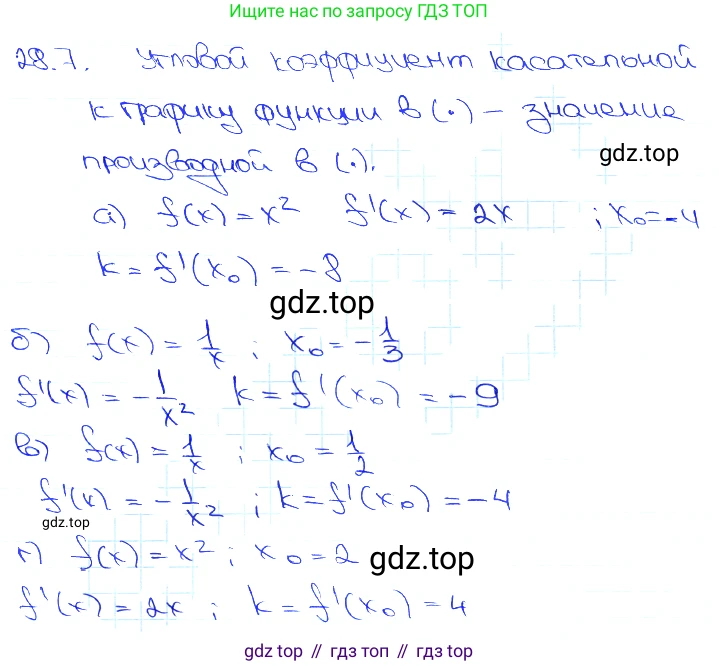 Ищите нас по запросу ГДЗ ТОП
28.7. Угловой коэффициент касательной
к графику функции в (·) – значение
производной в (·).
gdz.top
а) f(x) = x² f'(x) = 2x ; x₀ = -4
k = f'(x₀) = -8
gdz.top
б) f(x) = 1/x ; x₀ = -1/3
f'(x) = -1/x² k = f'(x₀) = -9
в) f(x) = 1/x ; x₀ = 1/2
f'(x) = -1/x² ; k = f'(x₀) = -4
gdz.top
г) f(x) = x² ; x₀ = 2
gdz.top
f'(x) = 2x ; k = f'(x₀) = 4
gdz top // гдз топ // gdz top